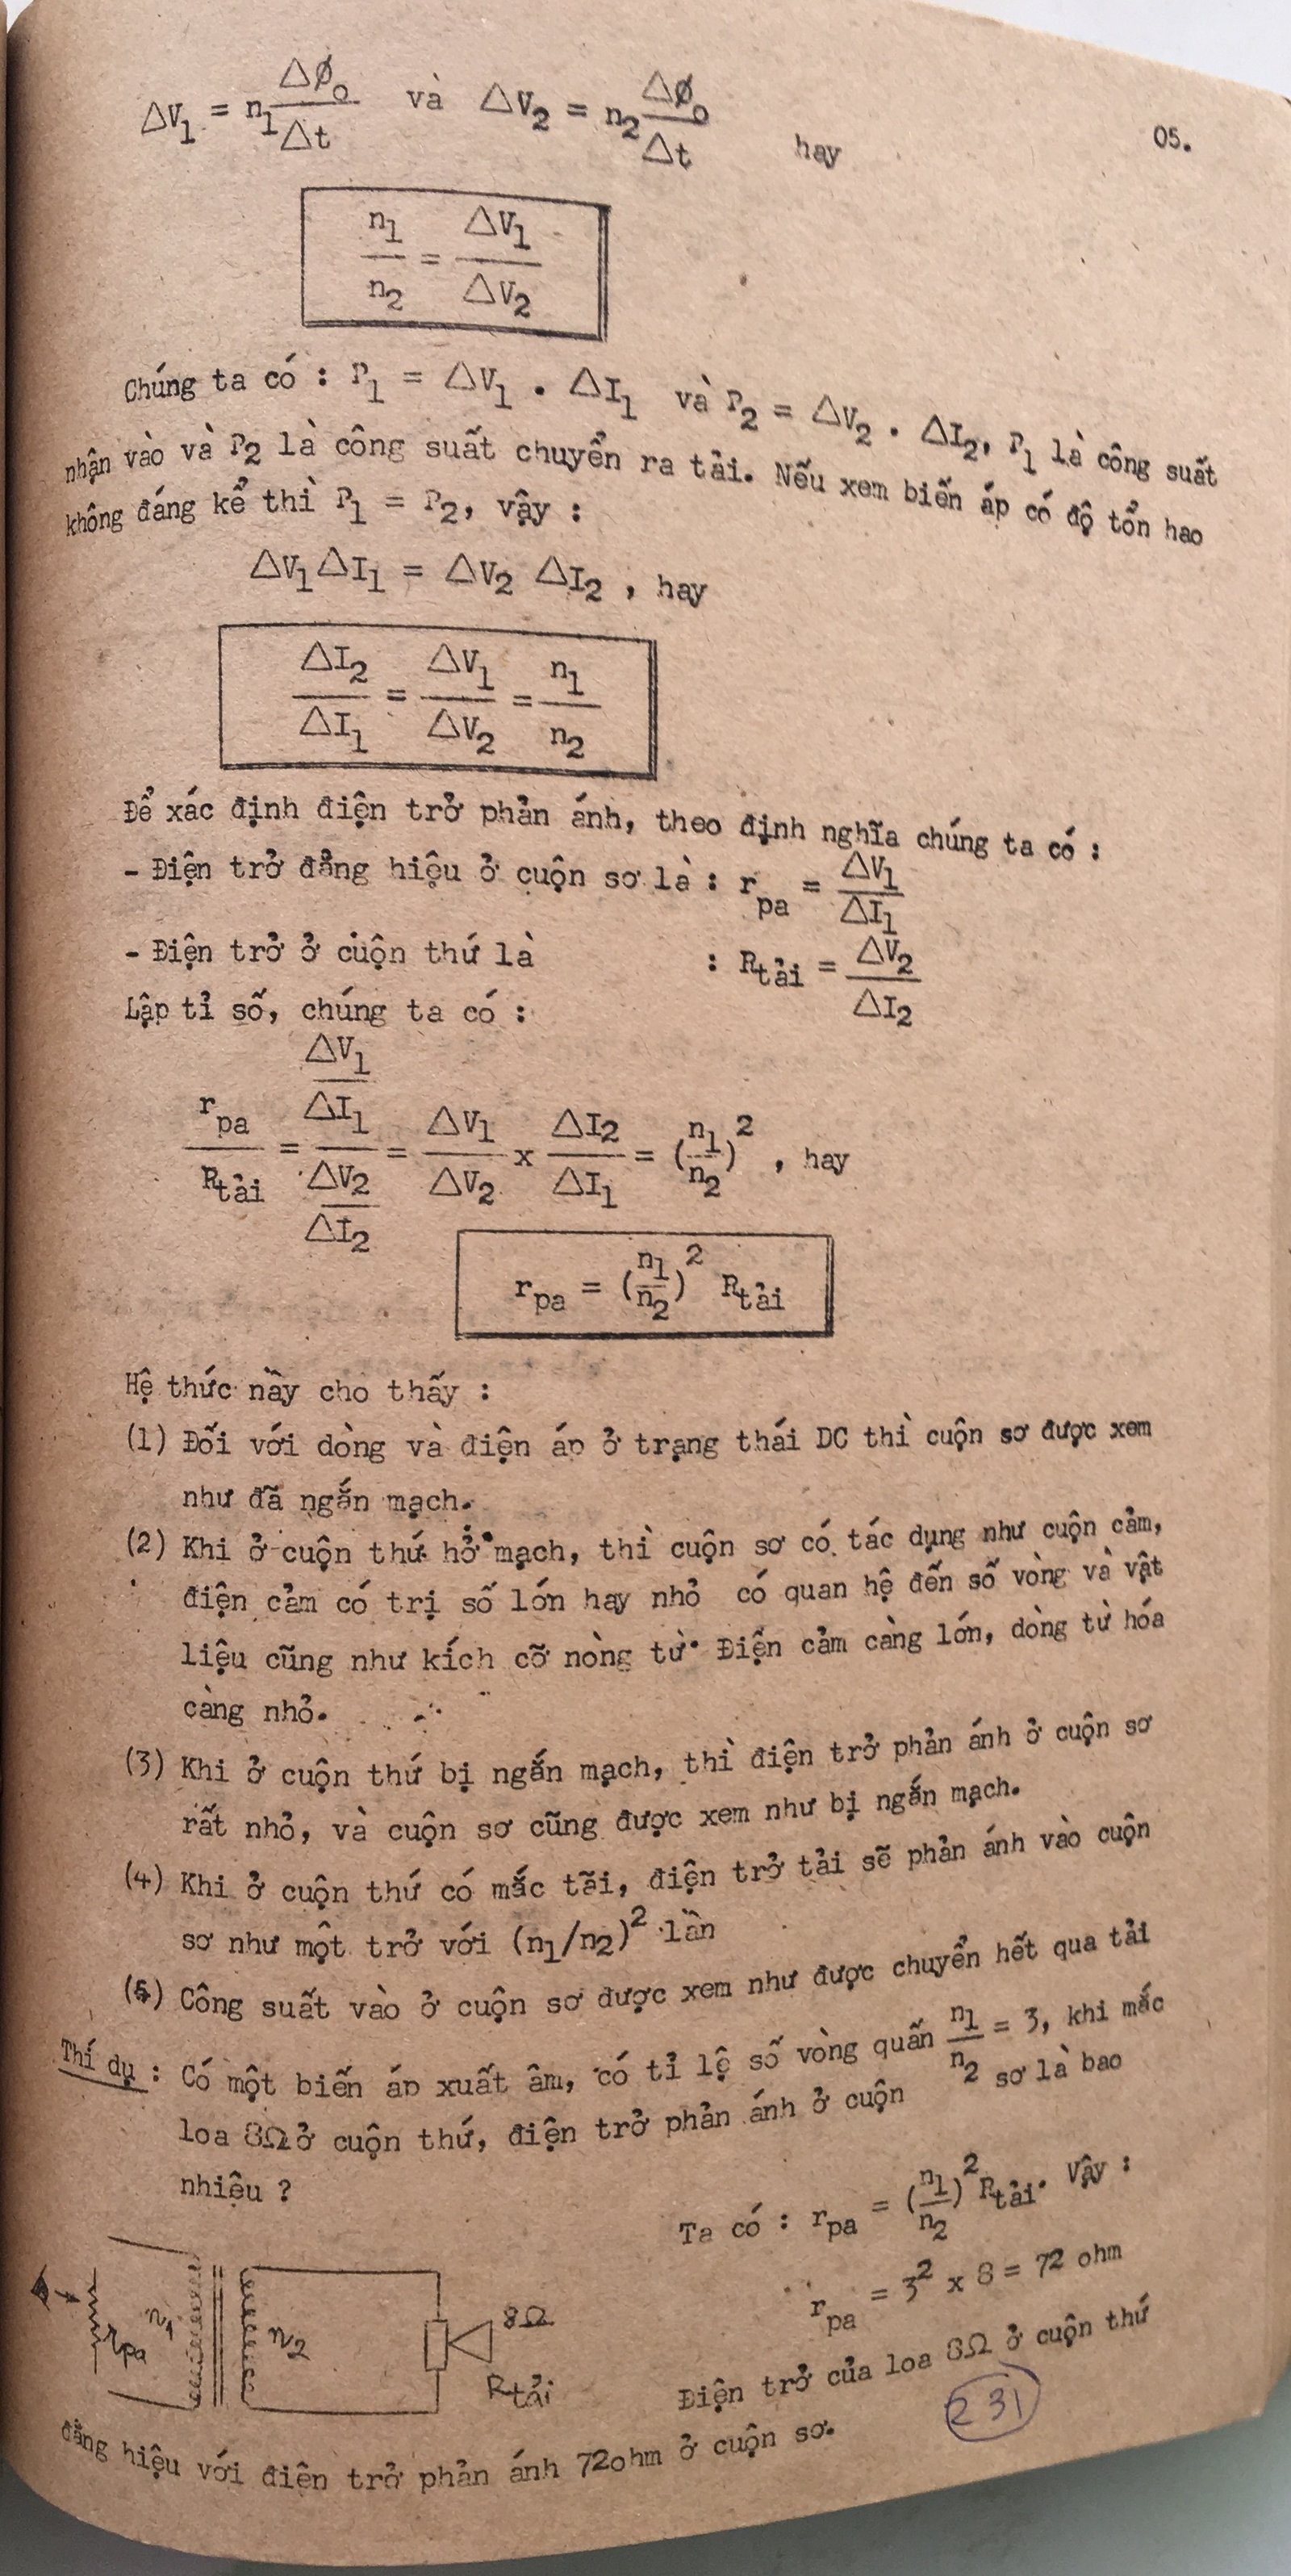 05.
ΔV1 = n1 Δø0/Δt và ΔV2 = n2 Δø0/Δt hay
n1/n2 = ΔV1/ΔV2
Chúng ta có : P1 = ΔV1 . ΔI1 và P2 = ΔV2 . ΔI2, P1 là công suất
nhận vào và P2 là công suất chuyển ra tải. Nếu xem biến áp có độ tổn hao
không đáng kể thì P1 = P2, vậy :
ΔV1 ΔI1 = ΔV2 ΔI2 , hay
ΔI2/ΔI1 = ΔV1/ΔV2 = n1/n2
Để xác định điện trở phản ánh, theo định nghĩa chúng ta có :
- Điện trở đẳng hiệu ở cuộn sơ là : rpa = ΔV1/ΔI1
- Điện trở ở cuộn thứ là : Rtải = ΔV2/ΔI2
Lập tỉ số, chúng ta có :
rpa/Rtải = (ΔV1/ΔI1)/(ΔV2/ΔI2) = ΔV1/ΔV2 x ΔI2/ΔI1 = (n1/n2)² , hay
rpa = (n1/n2)² Rtải
Hệ thức nầy cho thấy :
(1) Đối với dòng và điện áp ở trạng thái DC thì cuộn sơ được xem
như đã ngắn mạch.
(2) Khi ở cuộn thứ hở mạch, thì cuộn sơ có tác dụng như cuộn cảm,
điện cảm có trị số lớn hay nhỏ có quan hệ đến số vòng và vật
liệu cũng như kích cỡ nòng từ. Điện cảm càng lớn, dòng từ hóa
càng nhỏ.
(3) Khi ở cuộn thứ bị ngắn mạch, thì điện trở phản ánh ở cuộn sơ
rất nhỏ, và cuộn sơ cũng được xem như bị ngắn mạch.
(4) Khi ở cuộn thứ có mắc tãi, điện trở tải sẽ phản ánh vào cuộn
sơ như một trở với (n1/n2)² lần
(5) Công suất vào ở cuộn sơ được xem như được chuyển hết qua tải
Thí dụ : Có một biến áp xuất âm, có tỉ lệ số vòng quấn n1/n2 = 3, khi mắc
loa 8Ω ở cuộn thứ, điện trở phản ánh ở cuộn sơ là bao
nhiêu ?
Ta có : rpa = (n1/n2)² Rtải. Vậy :
rpa = 3² x 8 = 72 ohm
rpa n1 n2 8Ω
Rtải
Điện trở của loa 8Ω ở cuộn thứ
231
đẳng hiệu với điện trở phản ánh 72ohm ở cuộn sơ.